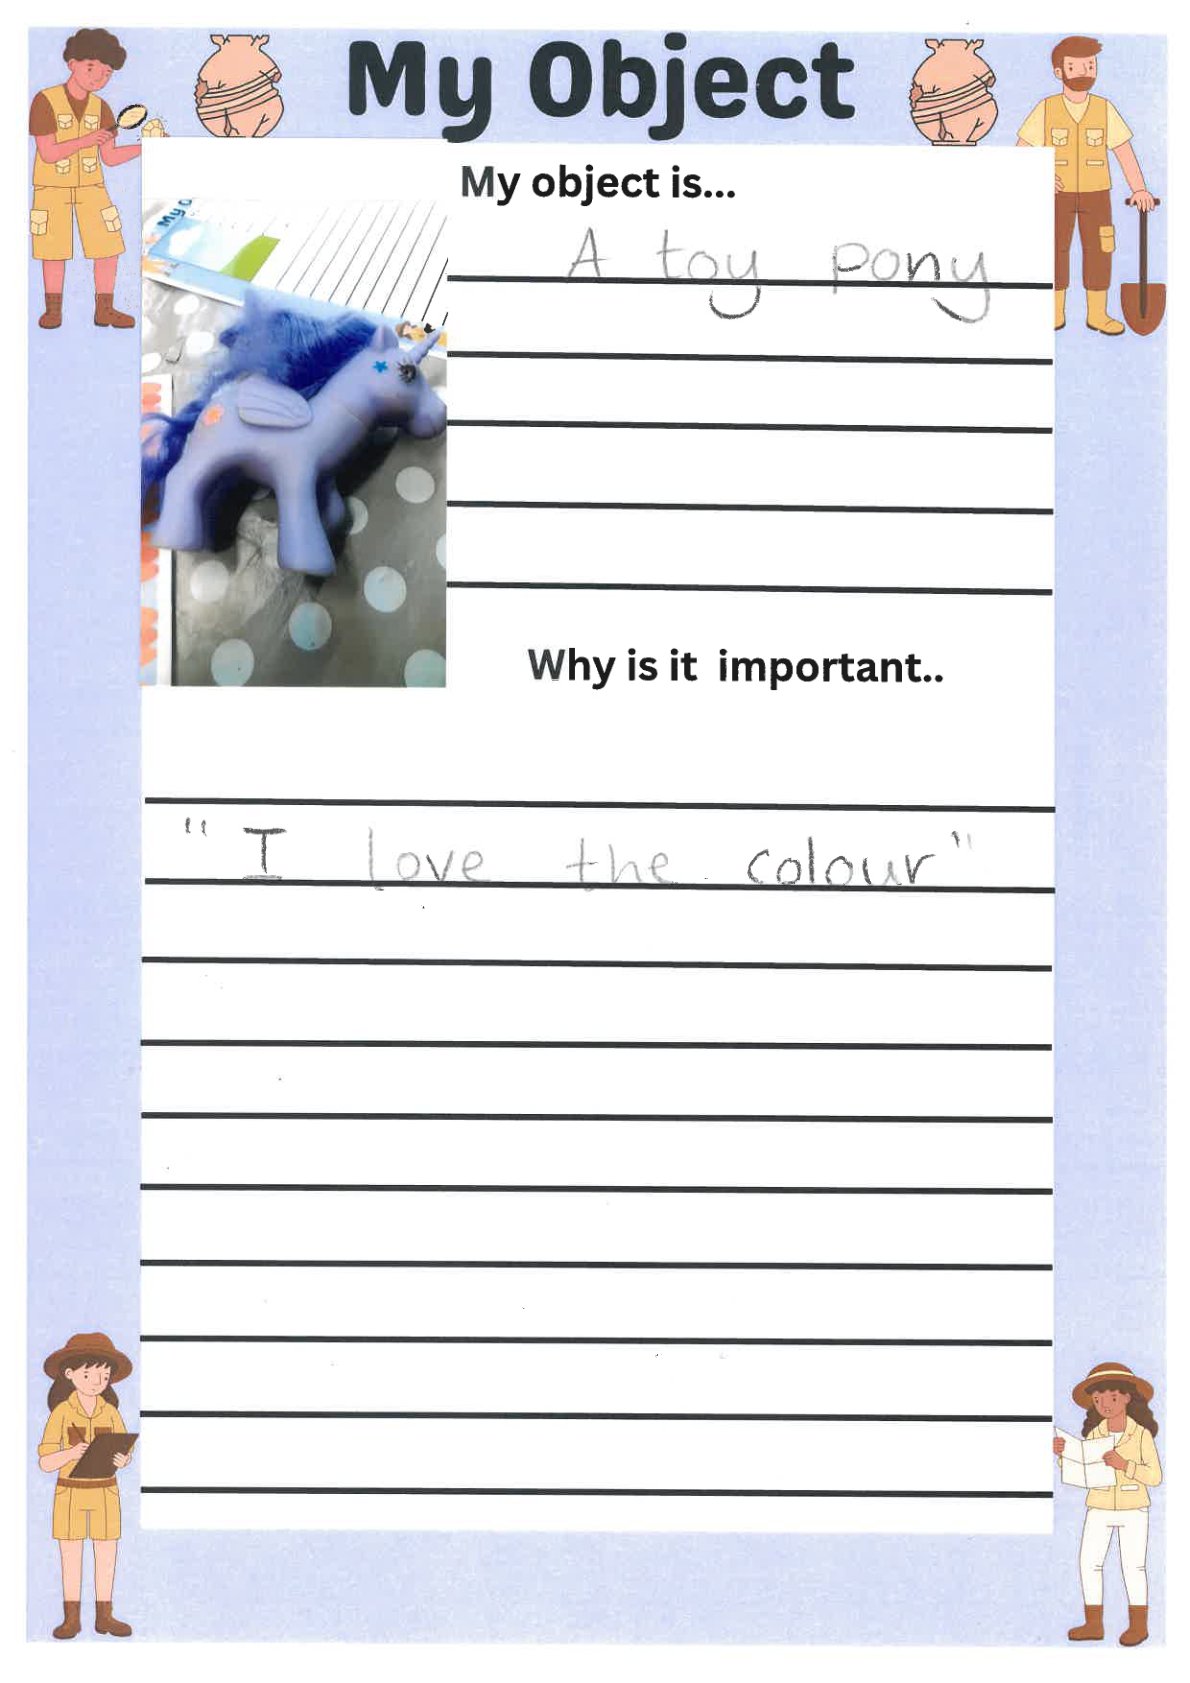 My Object
My object is...
My O
A toy pony
Why is it important..
"I love the colour"